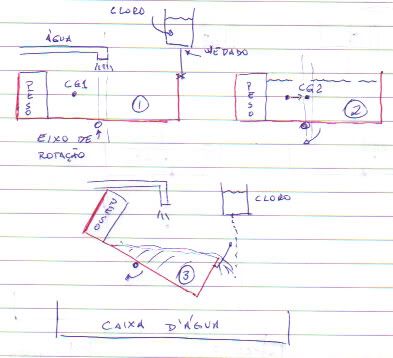 CLORO
ÁGUA
VEDADO
PESO
CG1
1
PESO
CG2
2
EIXO DE
ROTAÇÃO
CLORO
3
CAIXA D'ÁGUA